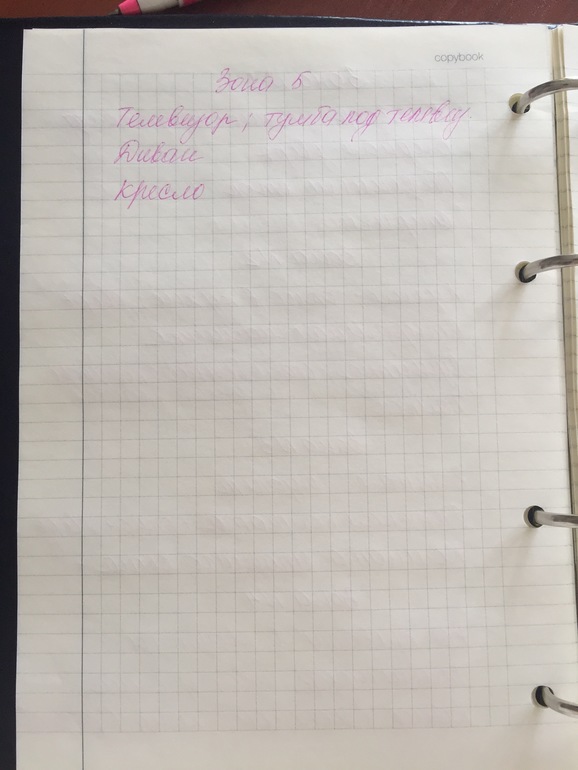 copybook
Зона 5
Телевизор, тумба под телевиз.
Диван
Кресло